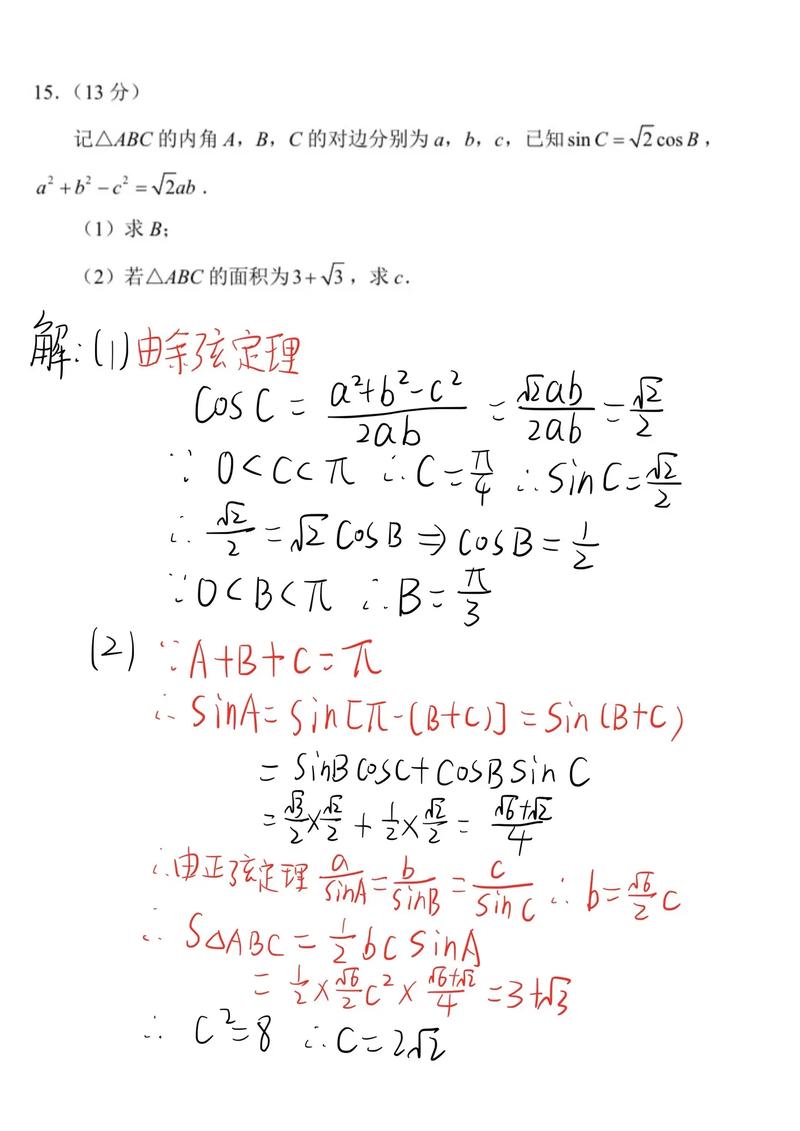 15.（13 分）
记△ABC 的内角 A，B，C 的对边分别为 a，b，c，已知 sin C = √2 cos B，
a² + b² − c² = √2ab．
（1）求 B；
（2）若△ABC 的面积为 3+√3，求 c．
解:(1)由余弦定理
cos C = (a²+b²-c²)/(2ab) = (√2ab)/(2ab) = √2/2
∵ 0<C<π ∴C=π/4 ∴sin C=√2/2
∴ √2/2 = √2 cos B ⇒ cos B = 1/2
∵0<B<π ∴B=π/3
(2) ∵A+B+C=π
∴ sinA= sin[π-(B+C)] = sin(B+C)
= sinB cosC + cosB sin C
= √3/2×√2/2 + 1/2×√2/2 = (√6+√2)/4
∴由正弦定理 a/sinA = b/sinB = c/sin C ∴ b=√6/2 c
∴ S△ABC = 1/2 bc sinA
= 1/2×√6/2 c²×(√6+√2)/4 =3+√3
∴ c²=8 ∴c=2√2